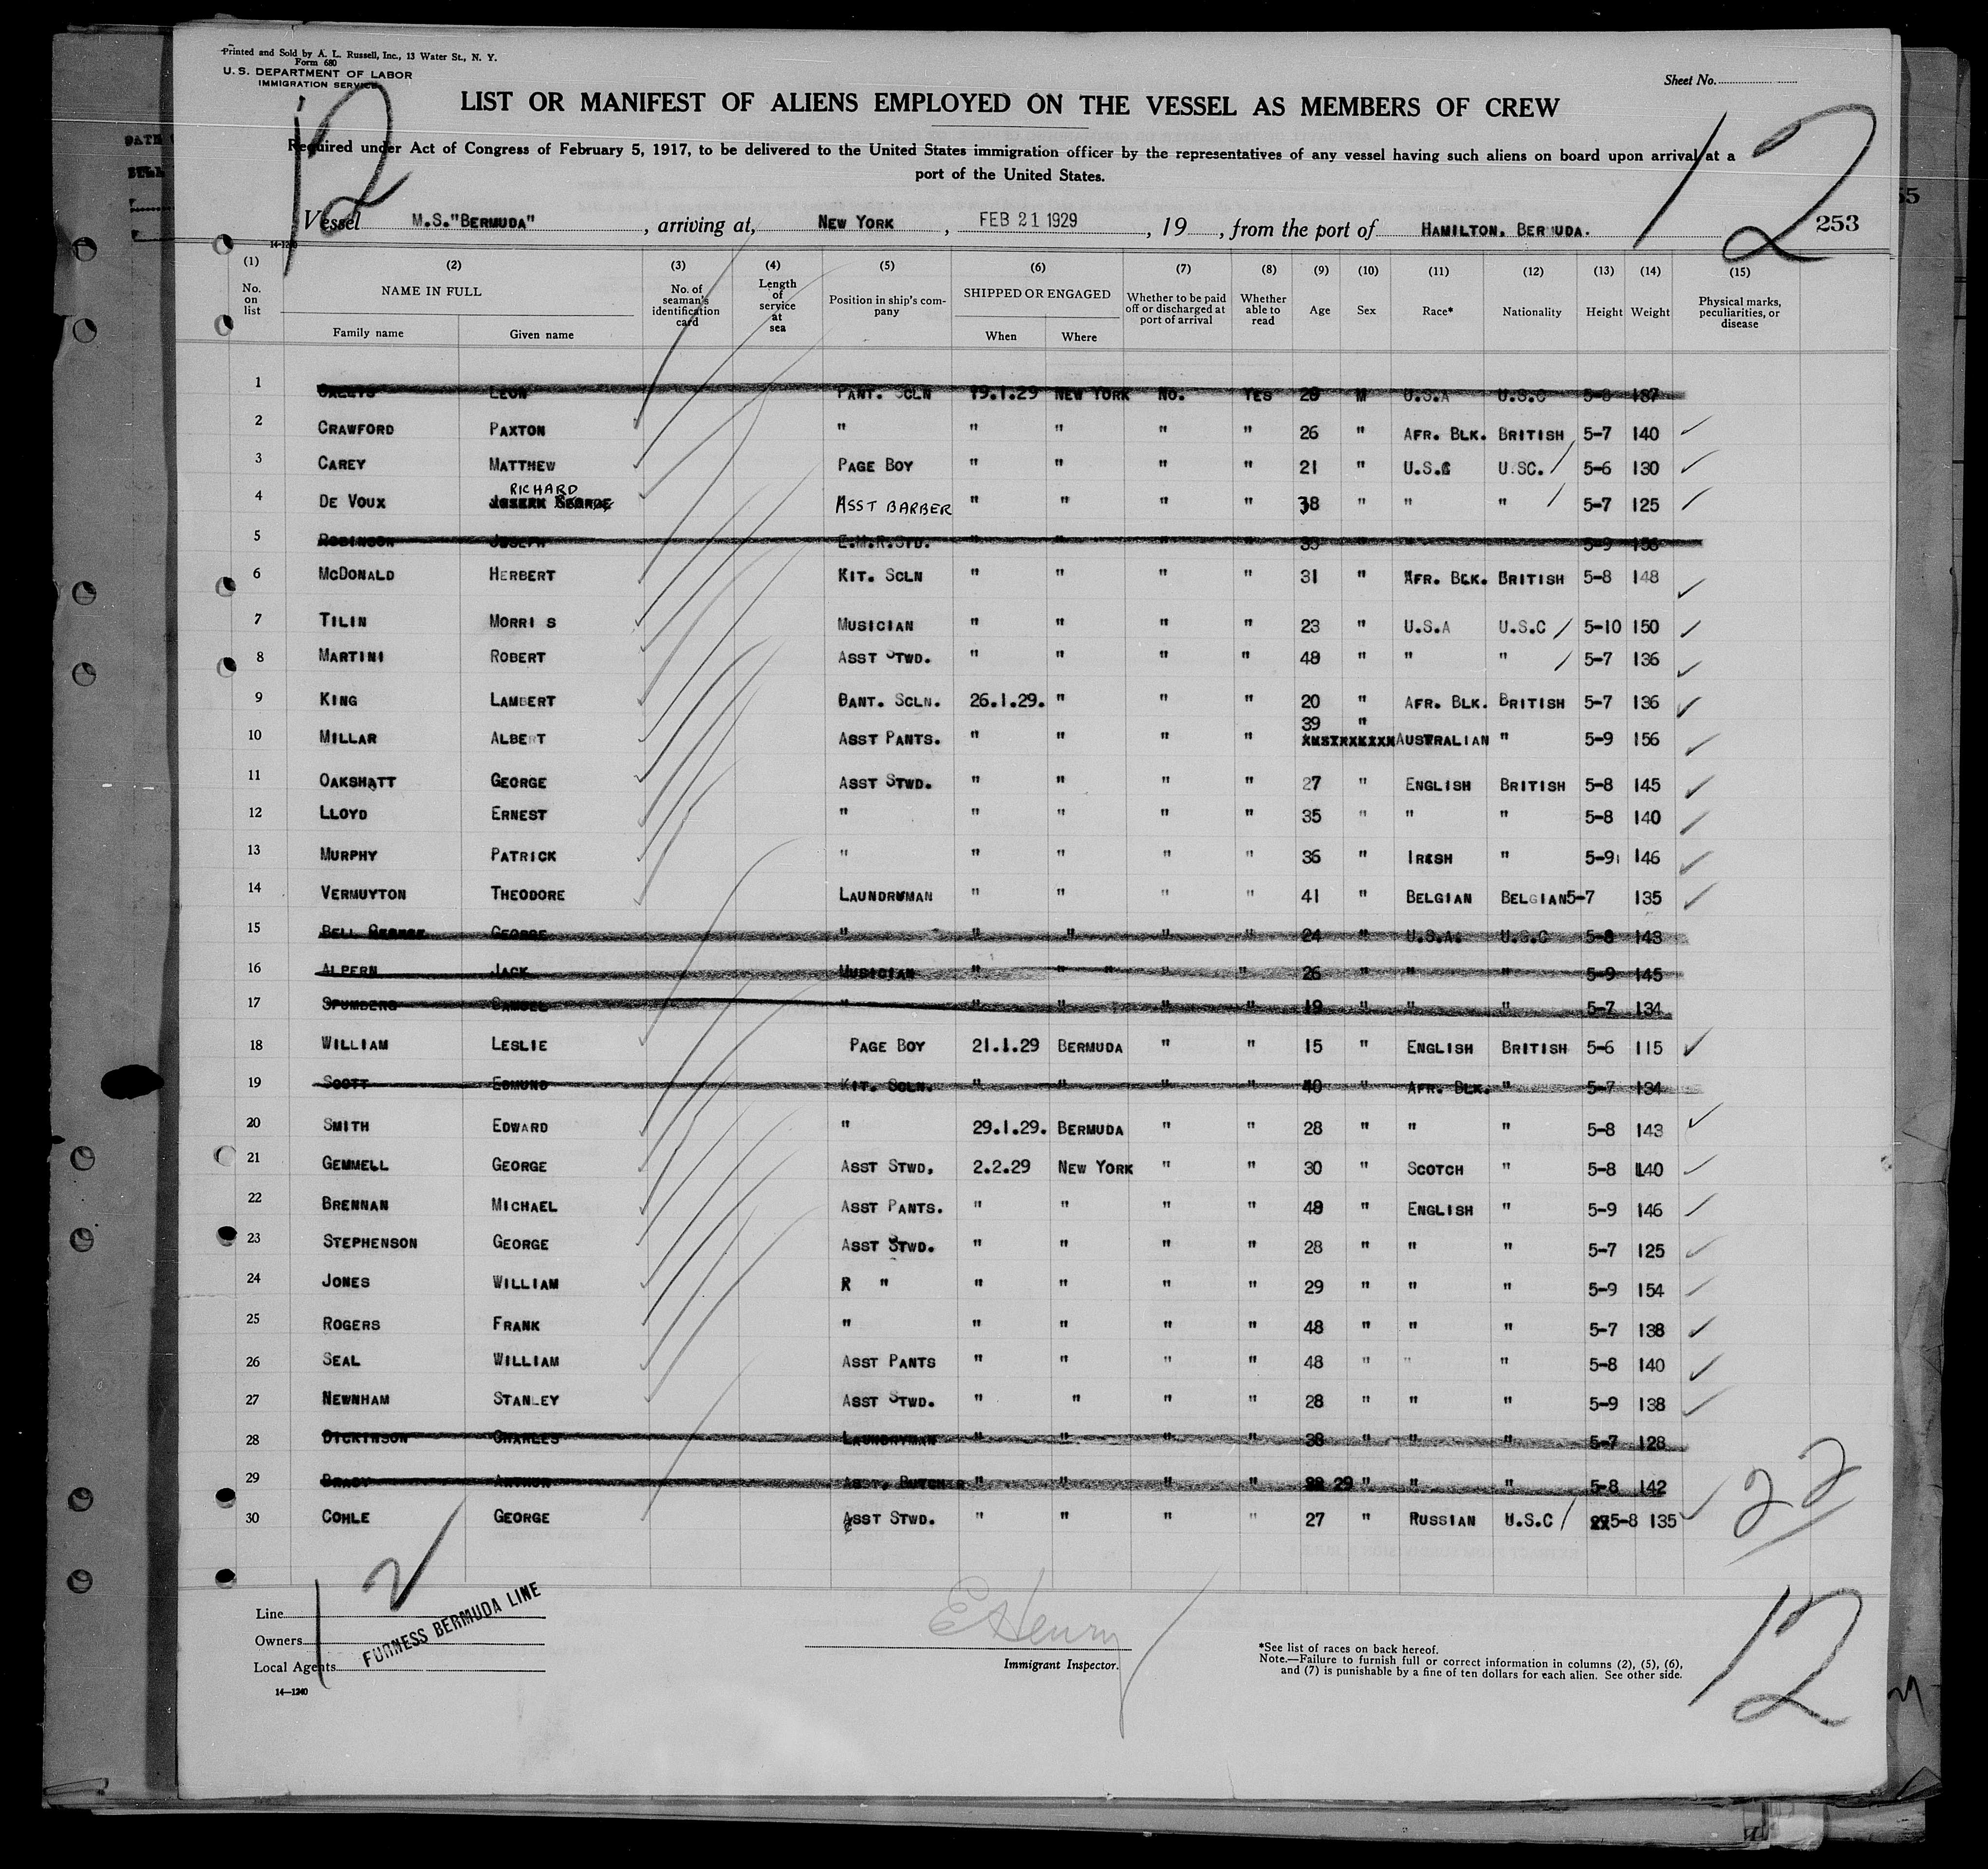 Printed and Sold by A. L. Russell, Inc., 13 Water St., N. Y.
Form 680
U. S. DEPARTMENT OF LABOR
IMMIGRATION SERVICE
Sheet No.
12
12
LIST OR MANIFEST OF ALIENS EMPLOYED ON THE VESSEL AS MEMBERS OF CREW
Required under Act of Congress of February 5, 1917, to be delivered to the United States immigration officer by the representatives of any vessel having such aliens on board upon arrival at a
port of the United States.
Vessel M.S."BERMUDA", arriving at, NEW YORK, FEB 21 1929, 19, from the port of HAMILTON, BERMUDA. 253
(1) (2) (3) (4) (5) (6) (7) (8) (9) (10) (11) (12) (13) (14) (15)
No. on list NAME IN FULL Family name Given name No. of seaman's identification card Length of service at sea Position in ship's company SHIPPED OR ENGAGED When Where Whether to be paid off or discharged at port of arrival Whether able to read Age Sex Race* Nationality Height Weight Physical marks, peculiarities, or disease
1 LEON PANT. SCLN 19.1.29 NEW YORK NO. YES M U.S.A U.S.C 5-8
2 CRAWFORD PAXTON " " " " " 26 " AFR. BLK. BRITISH 5-7 140
3 CAREY MATTHEW PAGE BOY " " " " 21 " U.S.C U.SC. 5-6 130
4 DE VOUX RICHARD ASST BARBER " " " " 38 " " " 5-7 125
5 ROBINSON JOSEPH E.M.R.STD. " " " " 35 " " " 5-9 156
6 MCDONALD HERBERT KIT. SCLN " " " " 31 " AFR. BLK. BRITISH 5-8 148
7 TILIN MORRI S MUSICIAN " " " " 23 " U.S.A U.S.C 5-10 150
8 MARTINI ROBERT ASST STWD. " " " " 48 " " " 5-7 136
9 KING LAMBERT BANT. SCLN. 26.1.29. " " " 20 " AFR. BLK. BRITISH 5-7 136
10 MILLAR ALBERT ASST PANTS. " " " " 39 " AUSTRALIAN " 5-9 156
11 OAKSHATT GEORGE ASST STWD. " " " " 27 " ENGLISH BRITISH 5-8 145
12 LLOYD ERNEST " " " " " 35 " " " 5-8 140
13 MURPHY PATRICK " " " " " 36 " IRISH " 5-9 146
14 VERMUYTON THEODORE LAUNDRYMAN " " " " 41 " BELGIAN BELGIAN 5-7 135
15 BELL GEORGE " " " " " 24 " U.S.A. U.S.C 5-8 143
16 ALPERN JACK MUSICIAN " " " " " 26 " " " 5-9 145
17 " " " " " 19 " " " 5-7 134
18 WILLIAM LESLIE PAGE BOY 21.1.29 BERMUDA " " 15 " ENGLISH BRITISH 5-6 115
19 SCOTT EDMUND KIT. SCLN. " " " " 40 " AFR. BLK. " 5-7 134
20 SMITH EDWARD " 29.1.29. BERMUDA " " 28 " " " 5-8 143
21 GEMMELL GEORGE ASST STWD, 2.2.29 NEW YORK " " 30 " SCOTCH " 5-8 140
22 BRENNAN MICHAEL ASST PANTS. " " " " 48 " ENGLISH " 5-9 146
23 STEPHENSON GEORGE ASST STWD. " " " " 28 " " " 5-7 125
24 JONES WILLIAM R " " " " " 29 " " " 5-9 154
25 ROGERS FRANK " " " " " 48 " " " 5-7 138
26 SEAL WILLIAM ASST PANTS " " " " 48 " " " 5-8 140
27 NEWNHAM STANLEY ASST STWD. " " " " 28 " " " 5-9 138
28 DICKINSON CHARLES LAUNDRYMAN " " " " 38 " " " 5-7 128
29 BRADY ARTHUR ASST, BUTCHER " " " " 29 " " " 5-8 142
30 COHLE GEORGE ASST STWD. " " " " 27 " RUSSIAN U.S.C 5-8 135
22
Line
Owners
Local Agents
FURNESS BERMUDA LINE
14—1240
E Henry
Immigrant Inspector.
*See list of races on back hereof.
Note.—Failure to furnish full or correct information in columns (2), (5), (6),
and (7) is punishable by a fine of ten dollars for each alien. See other side.
12